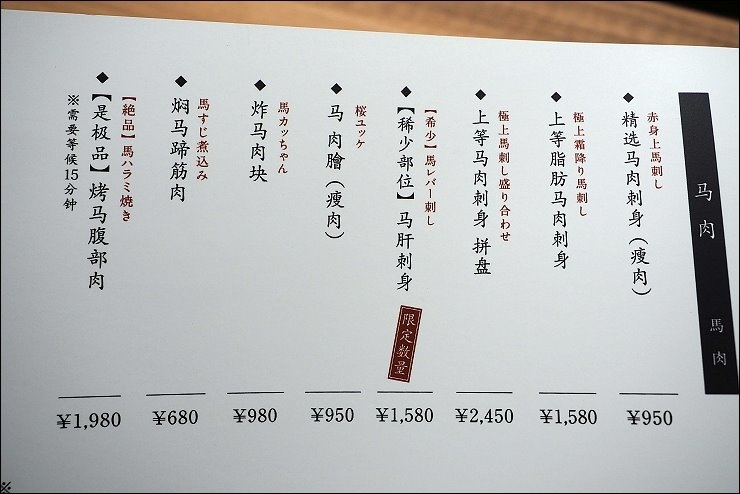 马肉 馬肉
赤身上馬刺し
◆精选马肉刺身（瘦肉）
¥950
極上霜降り馬刺し
◆上等脂肪马肉刺身
¥1,580
極上馬刺し盛り合わせ
◆上等马肉刺身 拼盘
¥2,450
【希少】馬レバー刺し
◆【稀少部位】马肝刺身
限定数量
¥1,580
桜ユッケ
◆马肉膾（瘦肉）
¥950
馬カッちゃん
◆炸马肉块
¥980
馬すじ煮込み
◆焖马蹄筋肉
¥680
【絶品】馬ハラミ焼き
◆【是极品】烤马腹部肉
※需要等候15分钟
¥1,980
※